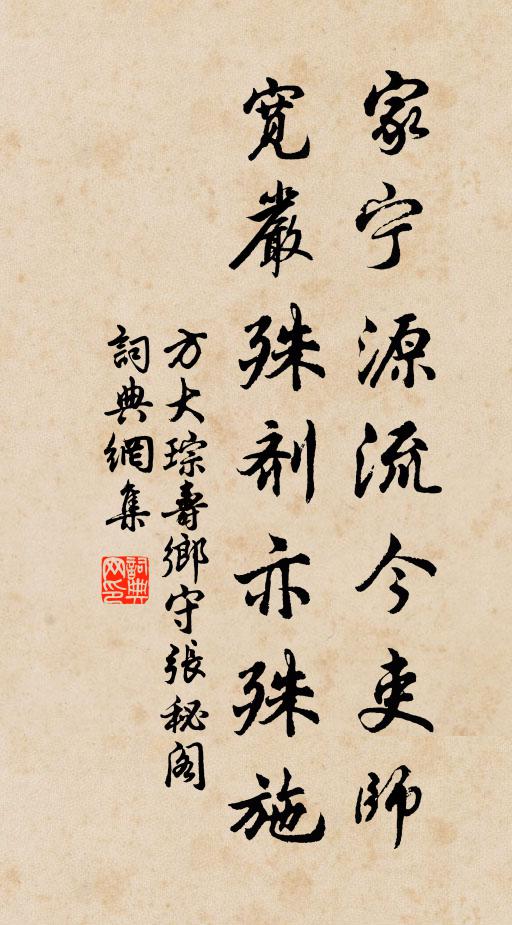 家宁源流今吏師
寬嚴殊剤亦殊施
方大琮壽鄉守張秘阁
詞典網集
詞典网印